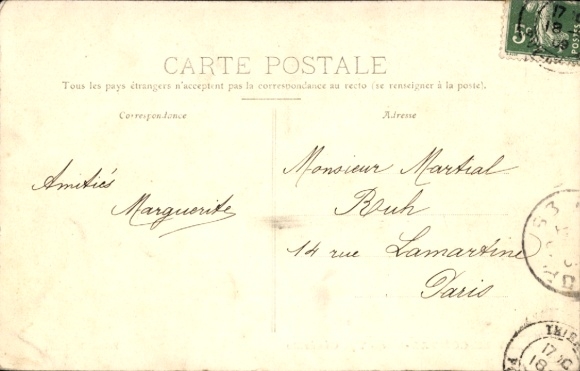 CARTE POSTALE
Tous les pays étrangers n'acceptent pas la correspondance au recto (se renseigner à la poste).
Correspondance
Adresse
Amitiés
Marguerite
Monsieur Martial
Ruh
14 rue Lamartine
Paris
5
POSTES
17
18